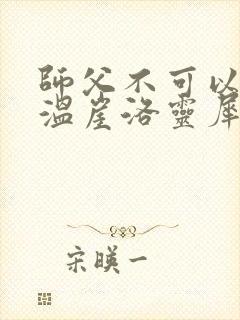 師父不可以
溫崖洛靈犀
宋暎一